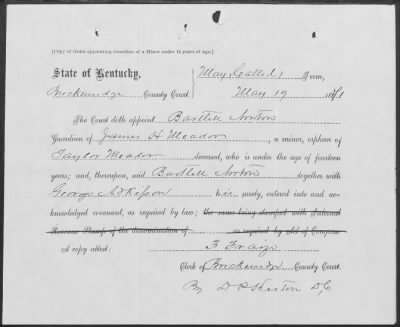 [Copy of Order appointing Guardian of a Minor under 14 years of age.]
State of Kentucky, May Called Term,
Breckenridge County Court. May 19 18
The Court doth appoint Bartlett Norton
Guardian of James H Meador, a minor, orphan of
Taylor Meador deceased, who is under the age of fourteen
years; and, thereupon, said Bartlett Norton together with
George his surety, entered into and ac-
knowledged covenant, as required by law; the same being stamped with Internal
Revenue Stamp of the denomination of as required by act of Congress.
A copy attest:
Clerk of Breckenridge County Court.
By D C